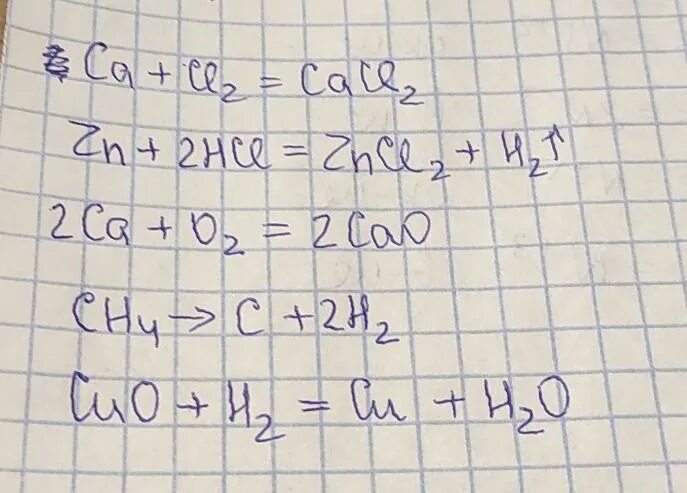 Ca + Cl₂ = CaCl₂
Zn + 2HCl = ZnCl₂ + H₂↑
2Ca + O₂ = 2CaO
CH₄ → C + 2H₂
CuO + H₂ = Cu + H₂O